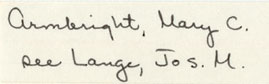 Armbright, Mary C.
see Lange, Jos. M.